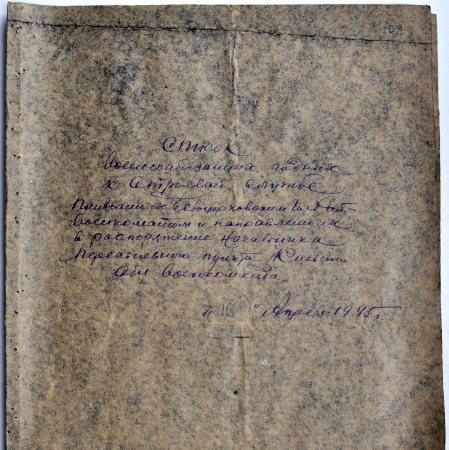 Список
военнообязаных годных
к строевой службе
призванных
военкоматом и направленных
в распоряжение начальника
пересыльного пункта Киевского
обл военкомата.
"16" Апреля 1945 г.